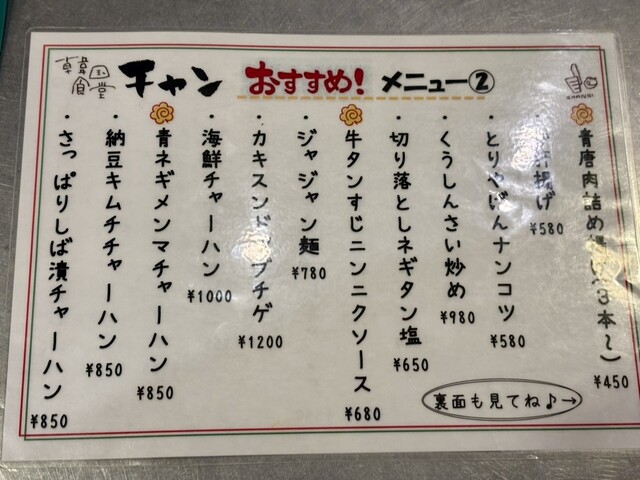 韓国食堂 チャン おすすめ! メニュー②
青唐肉詰め揚げ(3本~) ¥450
揚げ ¥580
・とりやげんナンコツ ¥580
・くうしんさい炒め ¥980
・切り落としネギタン塩 ¥650
牛タンすじニンニクソース ¥680
・ジャジャン麺 ¥780
・カキスンドゥブチゲ ¥1200
・海鮮チャーハン ¥1000
青ネギメンマチャーハン ¥850
・納豆キムチチャーハン ¥850
・さっぱりしば漬チャーハン ¥850
裏面も見てね♪→